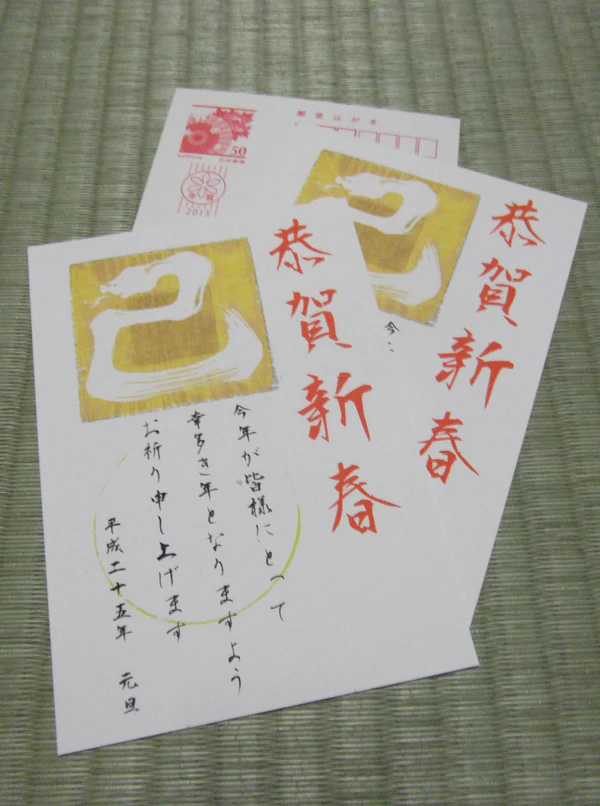 郵便はがき
50
NIPPON 日本郵便
2013
巳
恭賀新春
今
巳
恭賀新春
今年が皆様にとって
幸多き年となりますよう
お祈り申し上げます
平成二十五年 元旦